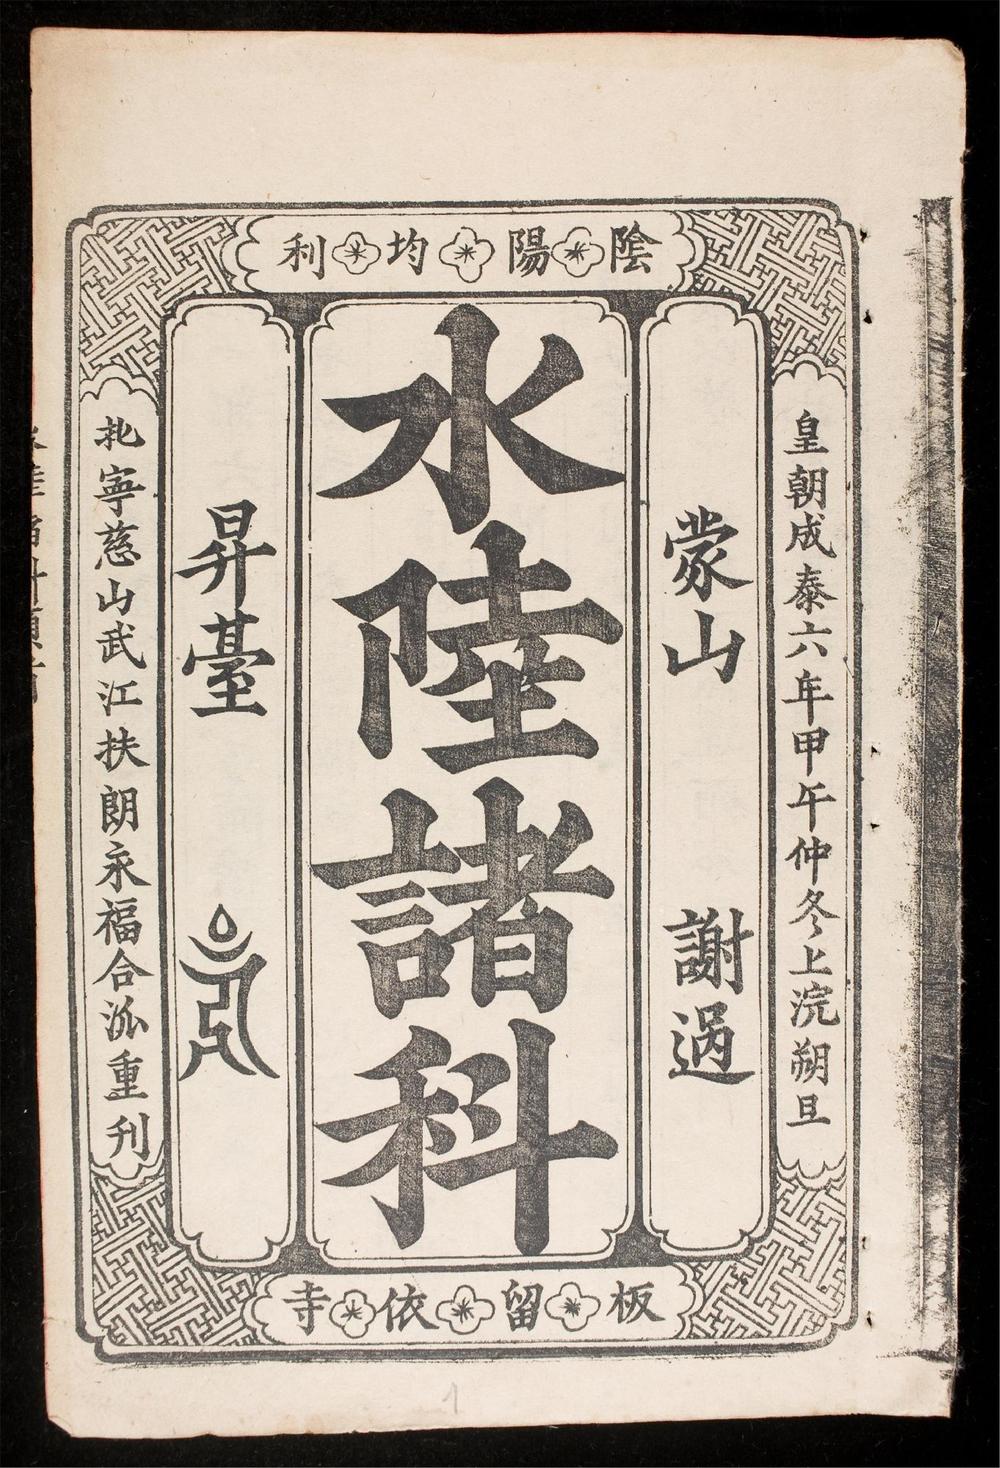 陰陽均利
皇朝成泰六年甲午仲冬上浣朔旦
蒙山 謝過
水陸諸科
昇臺
北寧慈山武江扶朗永福合派重刋
板留依寺